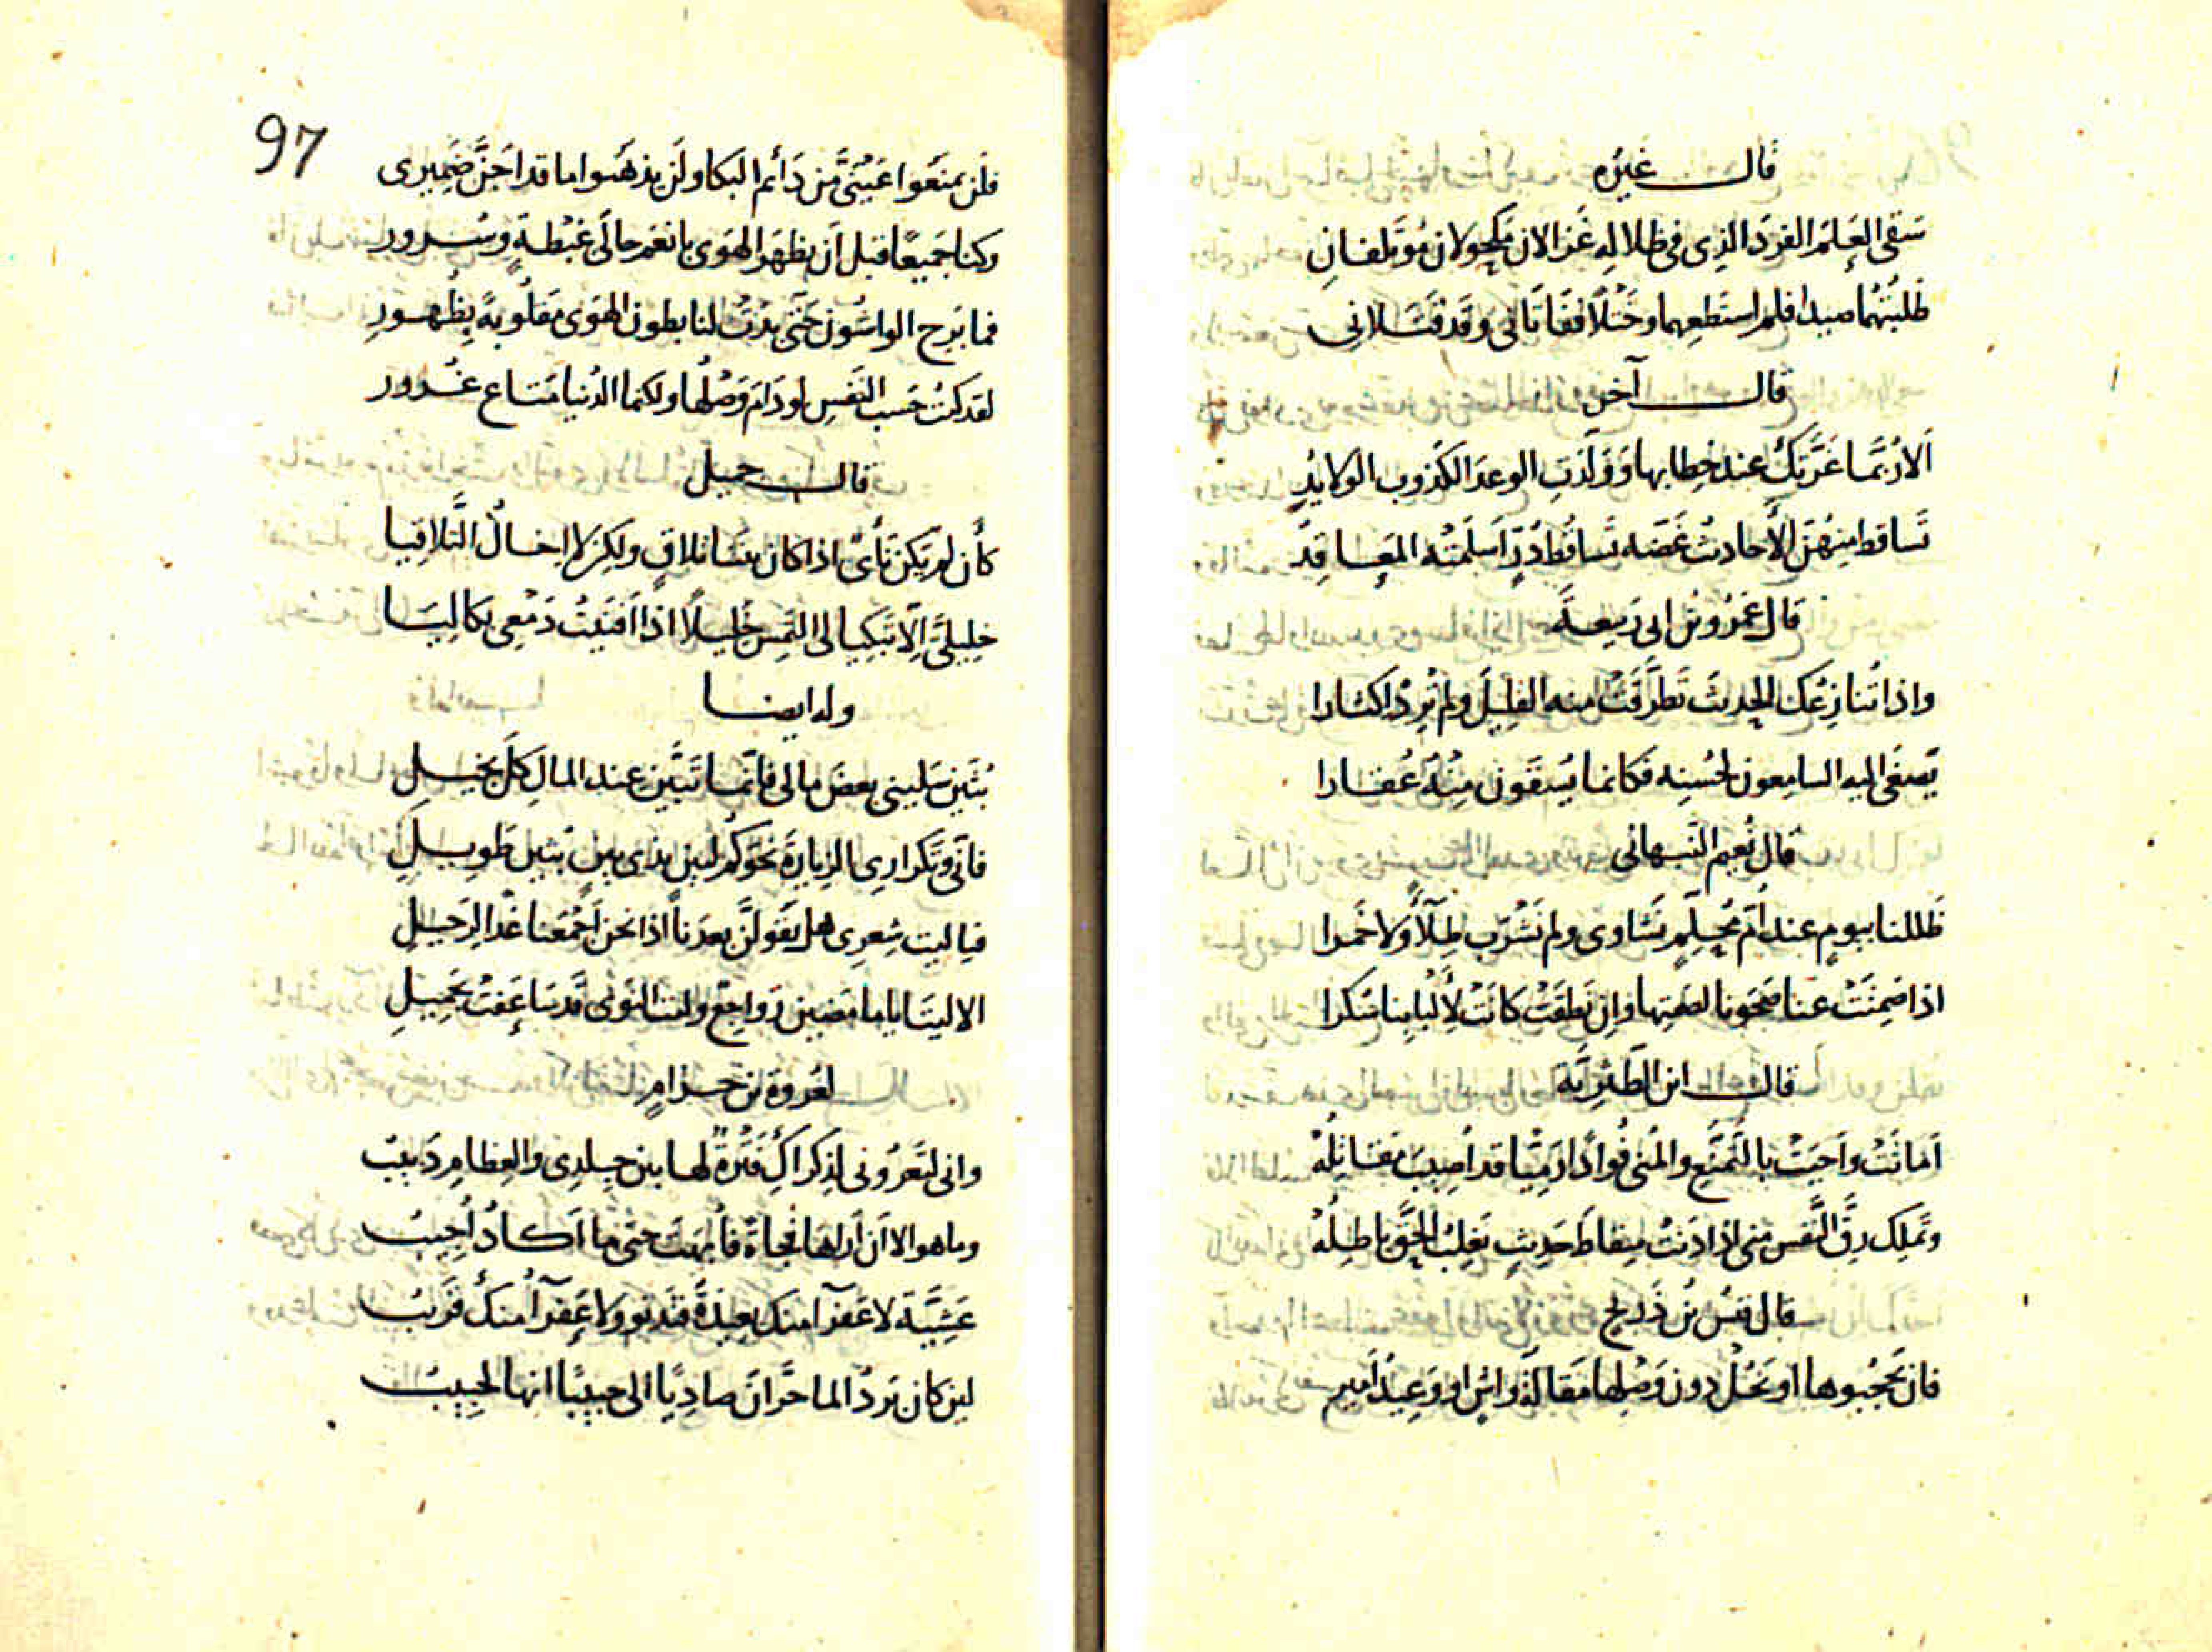 قال غيره
سَقى العَلمَ الفردَ الذى فى ظلاله غزالان مكحولان مؤتلفان
طَلبتُهُما صيدا فلم استَطعهما وخَتلًا ففاتانى وقد قَتَلانى
قال آخر
اَلا رُبَّما غَرَّتكَ عند خِطابها وَوَلَّدتِ الوعدَ الكَذوب الولايدُ
تَساقط منهُنَّ الأحاديثُ غَضّه تَساقُطَ دُرٍّ اَسلَمَتْه المَعاقِدُ
قال عَمرُو بن ابى رَبيعة
واذا تُنازِعُك الحديثَ تَطَرَّفَتْ منه القليلَ ولم تُرِدْ اكثارا
يَصغَى اليه السامعون لحُسنِه فكانما يُسقَون مِنْهُ عُقارا
قال نُعيم النَبهانى
ظَللنا بيومٍ عند اُمّ مُحلِّمٍ نَشاوى ولم نَشْرَب طِلآً ولا خَمرا
اذا صَمتَتْ عنا صَحَونا لصَمتِها وان نَطَقَتْ كانَتْ لأَلبابِنا سُكرا
قال ابن الطَثَريّة
اَماتَتْ واَحيَتْ بالتَمنُّع والمُنى فُوادًا رَميًّا قد اُصيبَ مَقاتِلُهْ
وتَملِك رِقَّ النَّفس منى اذا دَنتْ سِقاطَ حَديثٍ يَغلِبُ الحقَّ باطِلُهْ
قال قيس بن ذَريح
فان تَحجُبوها او تَحُلْ دون وَصْلِها مَقالةُ واشٍ او وَعيدُ اَمير
97
فلن يمنَعوا عَينَىَّ من دَائم البكا ولن يذهَبوا ما قد اَجَنَّ ضَميرى
وكنا جَميعًا قبل اَن يظهَر الهَوى بانعَم حالَى غبْطةٍ وسُرور
فما بَرِح الواشون حَتَّى بَدَتْ لنا بطون الهَوى مَقلوبةً بِظهورِ
لقد كنتُ حَسبَ النَفسِ لو دَامَ وَصْلُها ولكنما الدُنيا مَتاع غُرور
قال جميل
كأن لم يَكن نَأىٌ اذا كان بيننا تلاقٍ ولكن لا اِخالُ التَّلاقيا
خليلَىَّ اِلَّا تَبكِيا لى اَلتمِس خَليلًا اذا اَفنَيتُ دَمْعِى بكا لِيَا
وله ايضا
بُثَين سَلينى بعضَ مالى فانّما تَبيَّن عند المالِ كلُّ بخيل
فانّى وتَكرارى الزيارةَ نَحوَكم لبين يدَى بين بثين طَويلِ
فيا ليت شِعرى هل يَقولَنَّ بعدَنا اذا نحن اَجمَعنا غدًا لِرَحيلِ
الا ليتَ اياما مَضين رَواجِع وليت النَوى قد ساعَفتْ بجَميلِ
لعُروة بن حزامٍ
وانى لتَعرُونى لِذكراكِ فَترةٌ لها بين جِلدِى والعِظام دَبيبُ
وما هو الا اَن اَراها فُجاءَةً فاُبهَتَ حتى ما اَكادُ اُجيبُ
عَشِيَّةَ لا عَفرآ منك بعيدةٌ فتَدنو ولا عَفرآ منك قَريبُ
لين كان بَردُ الما حَرَّان صاديًا الى حبيبًا انها لحبيبُ